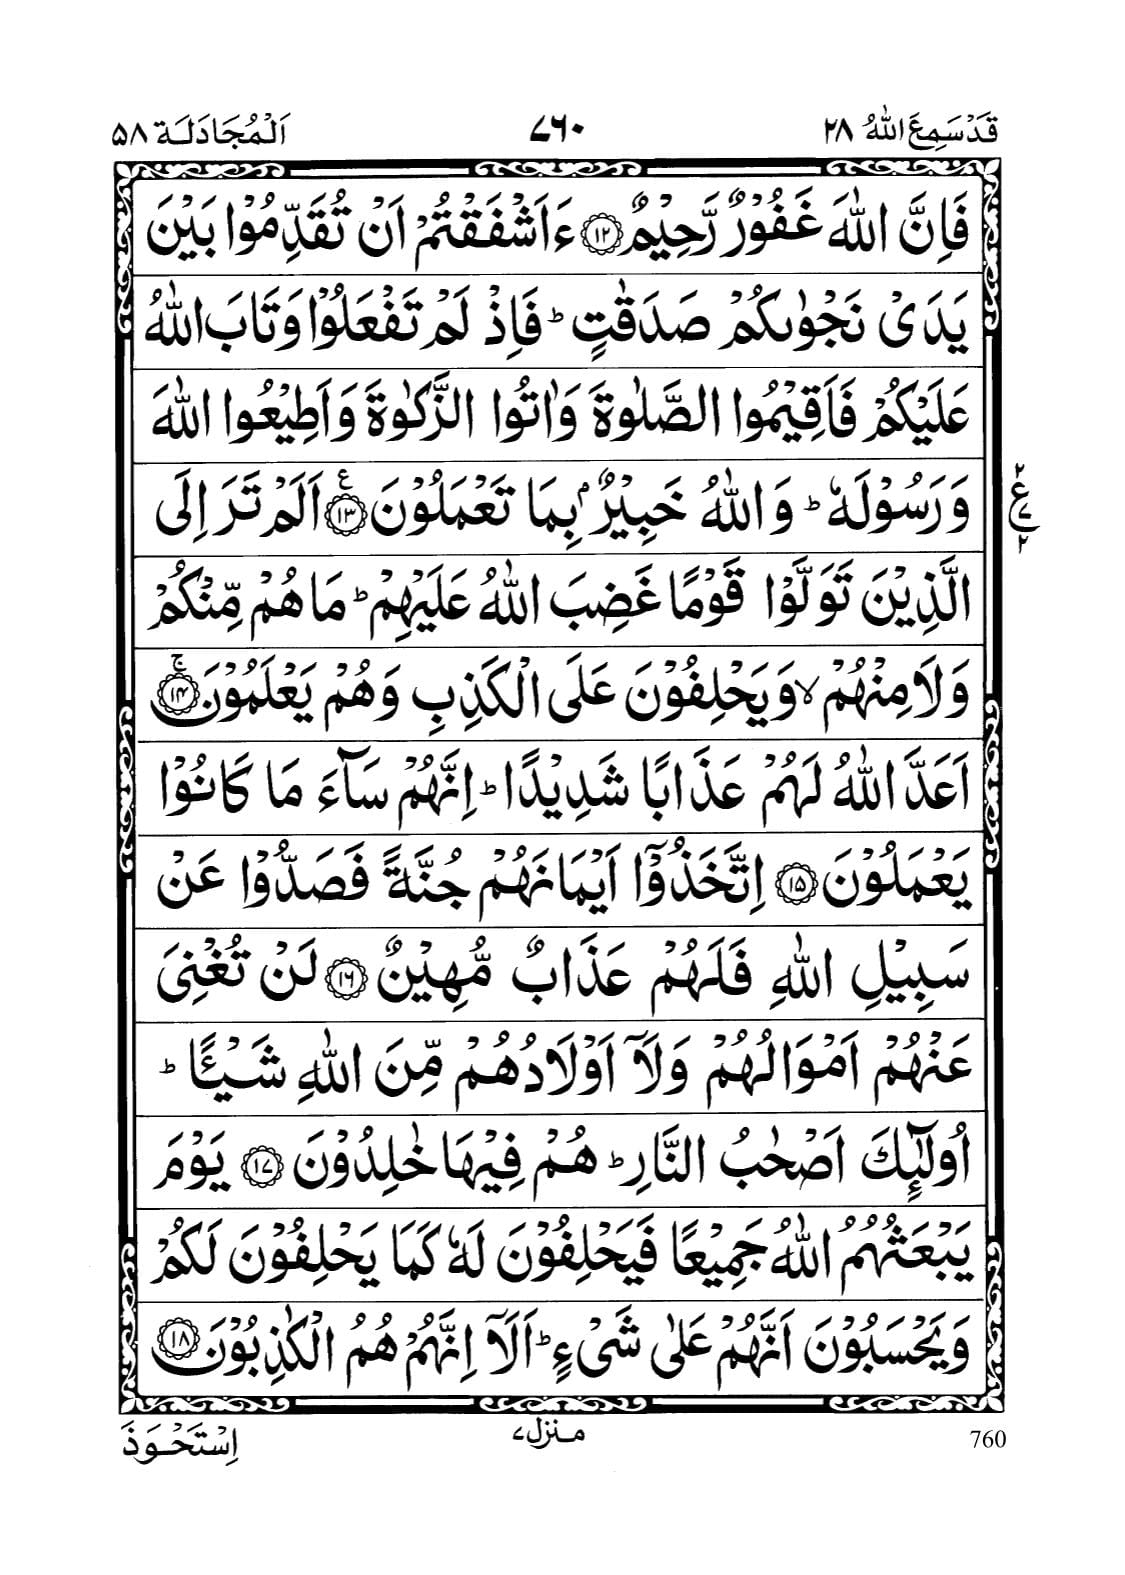 قَدْسَمِعَ اللّٰهُ ۲۸
۷۶۰
اَلْمُجَادَلَة ۵۸
فَاِنَّ اللّٰهَ غَفُوْرٌ رَّحِيْمٌ ۝۱۲ ءَاَشْفَقْتُمْ اَنْ تُقَدِّمُوْا بَيْنَ
يَدَىْ نَجْوٰىكُمْ صَدَقٰتٍ ؕ فَاِذْ لَمْ تَفْعَلُوْا وَتَابَ اللّٰهُ
عَلَيْكُمْ فَاَقِيْمُوا الصَّلٰوةَ وَاٰتُوا الزَّكٰوةَ وَاَطِيْعُوا اللّٰهَ
وَرَسُوْلَهٗ ؕ وَاللّٰهُ خَبِيْرٌۢ بِمَا تَعْمَلُوْنَ ۝۱۳ ع اَلَمْ تَرَ اِلَى
۲
ع
۷
۲
الَّذِيْنَ تَوَلَّوْا قَوْمًا غَضِبَ اللّٰهُ عَلَيْهِمْ ؕ مَا هُمْ مِّنْكُمْ
وَلَا مِنْهُمْ ۙ وَيَحْلِفُوْنَ عَلَى الْكَذِبِ وَهُمْ يَعْلَمُوْنَ ۝۱۴ ۚ
اَعَدَّ اللّٰهُ لَهُمْ عَذَابًا شَدِيْدًا ؕ اِنَّهُمْ سَآءَ مَا كَانُوْا
يَعْمَلُوْنَ ۝۱۵ اِتَّخَذُوْۤا اَيْمَانَهُمْ جُنَّةً فَصَدُّوْا عَنْ
سَبِيْلِ اللّٰهِ فَلَهُمْ عَذَابٌ مُّهِيْنٌ ۝۱۶ لَنْ تُغْنِىَ
عَنْهُمْ اَمْوَالُهُمْ وَلَاۤ اَوْلَادُهُمْ مِّنَ اللّٰهِ شَيْـًٔا ؕ
اُولٰٓئِكَ اَصْحٰبُ النَّارِ ؕ هُمْ فِيْهَا خٰلِدُوْنَ ۝۱۷ يَوْمَ
يَبْعَثُهُمُ اللّٰهُ جَمِيْعًا فَيَحْلِفُوْنَ لَهٗ كَمَا يَحْلِفُوْنَ لَكُمْ
وَيَحْسَبُوْنَ اَنَّهُمْ عَلٰى شَىْءٍ ؕ اَلَاۤ اِنَّهُمْ هُمُ الْكٰذِبُوْنَ ۝۱۸
760
منزل ۷
اِسْتَحْوَذَ